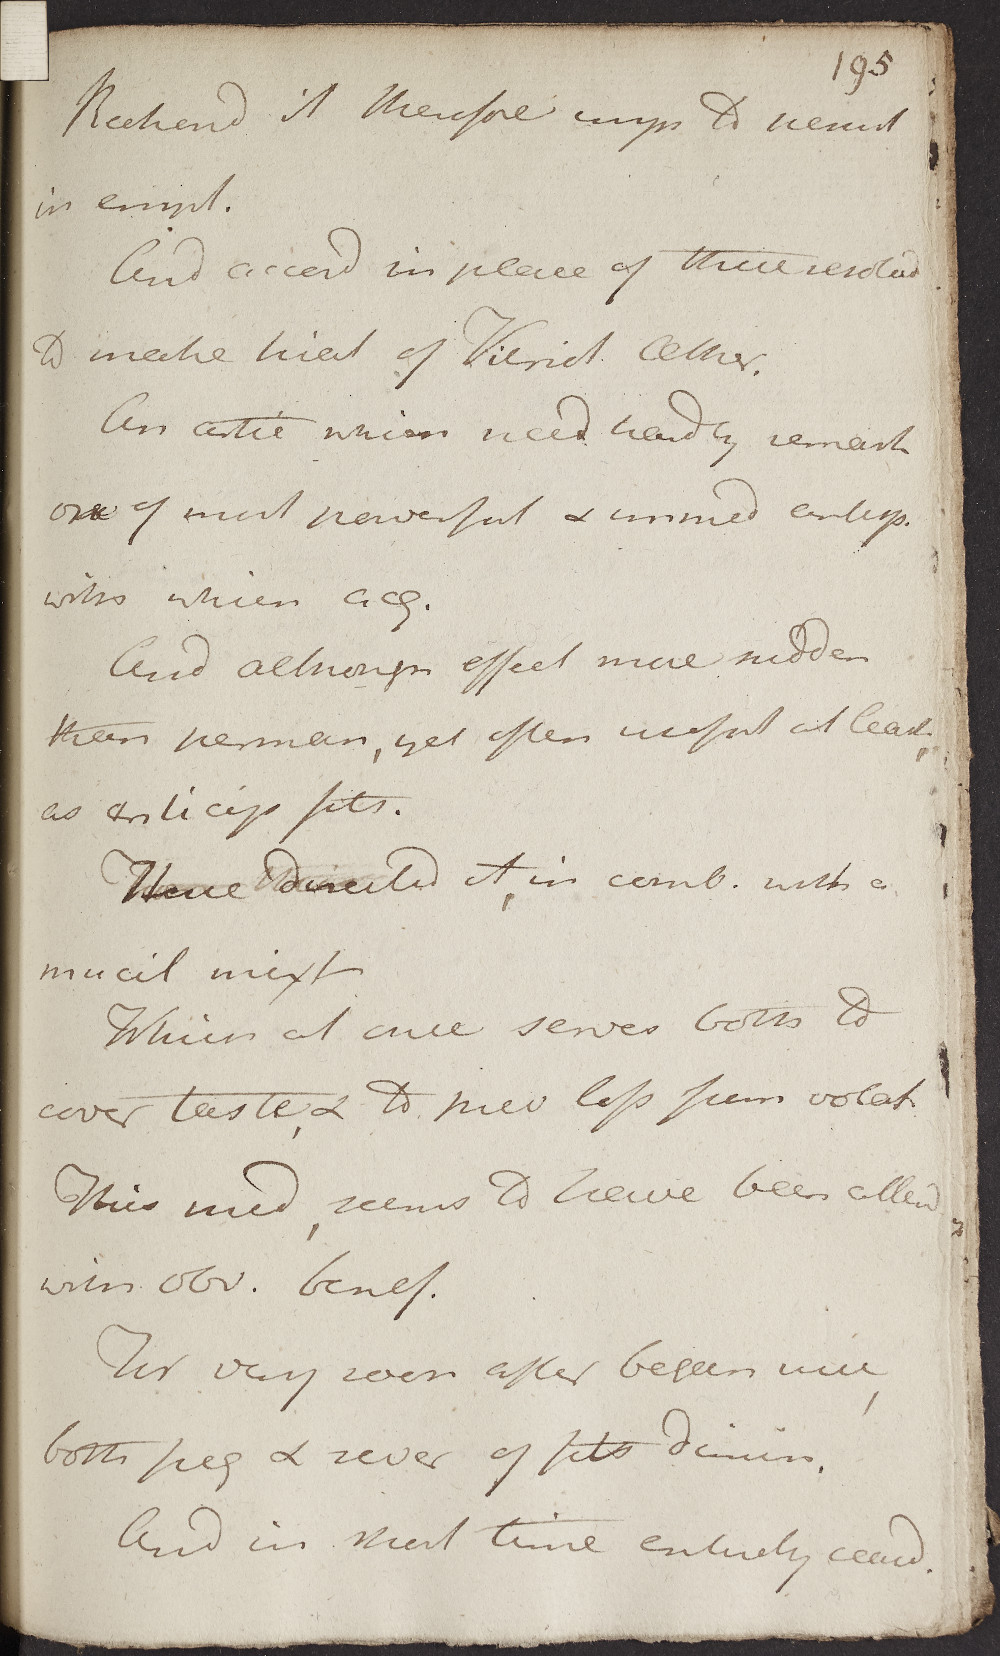 195
Reckend it therefore unn. to persist
in empl.
And accord in place of these resolved
to make trial of Vitriol. Æther.
An artic which need hardly remark
one of most powerful & immed antisp.
with which acq.
And although effect more sudden
than perman, yet often useful at least,
as anticip fits.
Have directed it, in comb. with a
mucil mixt
Which at once serves both to
cover taste, & to prev loss from volat.
This med, seems to have been attend
with obv. benef.
For very soon after began use,
both freq & sever of fits dimin.
And in short time entirely ceasd.